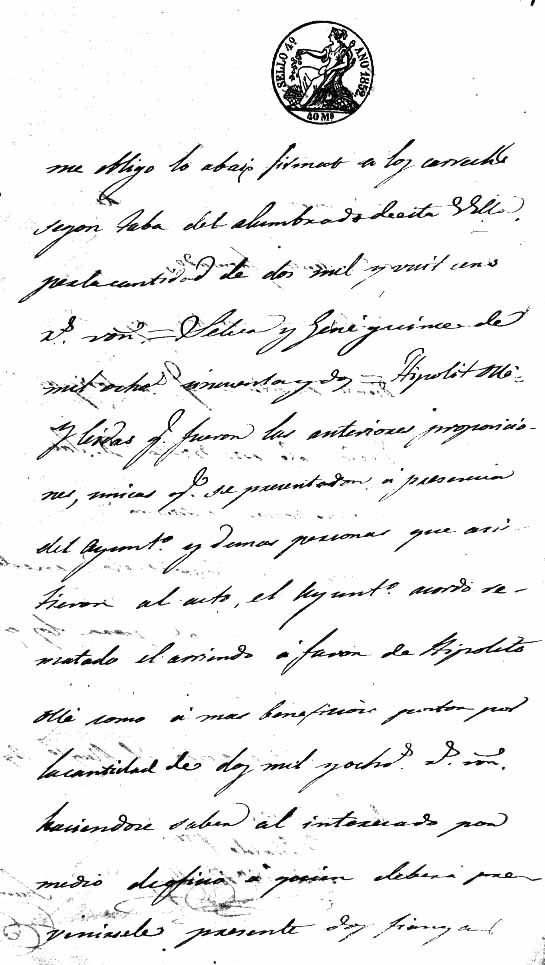 SELLO 4º AÑO 1852.
40 Ms
me obligo lo abaix firmat a los
segon taba del alumbrado de esta Villa,
per la cantidad de dos mil y vuit cens
rs. von. = Selva y Giné quince de
mil ochs. cincuenta y dos = Hipolit Olle =
Y leidas qe. fueron las anteriores proposicio-
nes, unicas qe. se presentaron á presencia
del Ayuntº. y demas personas que asis-
tieron al acto, el Ayuntº. acordó re-
matado el arriendo á favor de Hipolito
Olle como á mas beneficioso postor por
la cantidad de dos mil y ochs. rs. von.
haciendose saber al interesado por
medio de oficio á quien deberá pre-
venirsele presente dos fianzas